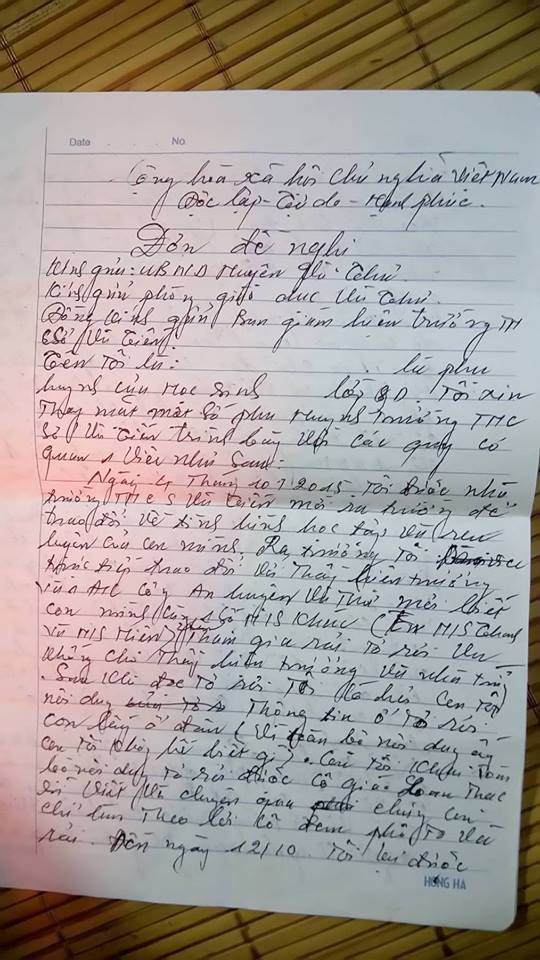 Date No.
Cộng hoà xã hội chủ nghĩa Việt Nam
Độc lập - Tự do - Hạnh phúc.
Đơn đề nghị
Kính gửi: UBND Huyện Vũ Thư
Kính gửi phòng giáo dục Vũ Thư.
Đồng kính gửi Ban giám hiệu trường TH
Cơ Sở Vũ Tiến
Tên tôi là: là phụ
huynh của Học Sinh lớp 8D. Tôi xin
Thay mặt một số phụ Huynh trường THC
Sở Vũ Tiến trình bày với các quý cơ
quan 1 việc như Sau:
Ngày 4 Tháng 10 / 2015 Tôi được nhà
trường THCS Vũ tiến mời ra trường để
trao đổi về tình hình học tập và rèn
luyện của con mình. Ra trường tôi
trực tiếp trao đổi với Thầy hiệu trưởng
và Công An huyện Vũ Thư mới biết
con mình cùng 1 số H/S Khác (Em H/S
và H/S Hiền) Tham gia rải tờ rơi Vu
khống cho Thầy hiệu trưởng và nhà trường
. Sau khi đọc tờ rơi Tôi có hỏi con tôi
nội dung Thông tin ở tờ rơi
con lấy ở đâu (Vì toàn bộ nội dung ấy
con tôi không hề biết gì). Con tôi
bảo nội dung tờ rơi được cô giáo Loan
Viết và chuyển qua chúng con
chỉ làm Theo lời cô đem phô tô và
rải. Đến ngày 12/10 Tôi lại được
HỒNG HÀ